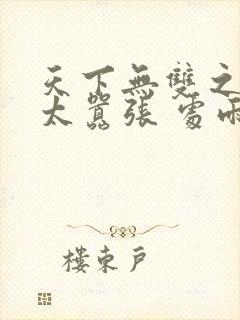 天下無雙之
太囂張 處雨
樓東戶